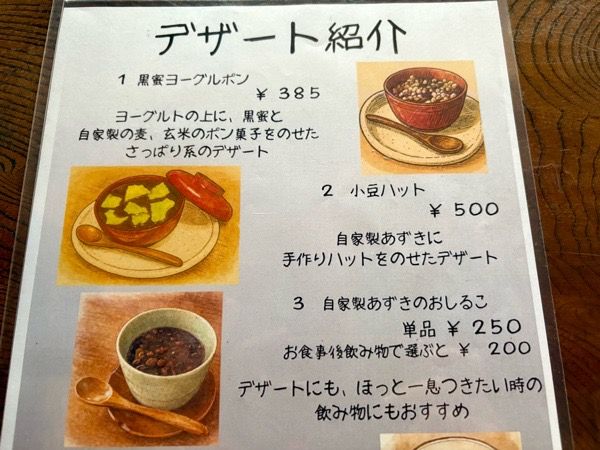 デザート紹介
1 黒蜜ヨーグルポン
¥ 385
ヨーグルトの上に、黒蜜と
自家製の麦、玄米のポン菓子をのせた
さっぱり系のデザート
2 小豆ハット
¥ 500
自家製あずきに
手作りハットをのせたデザート
3 自家製あずきのおしるこ
単品 ¥ 250
お食事後飲み物で選ぶと ¥ 200
デザートにも、ほっと一息つきたい時の
飲み物にもおすすめ